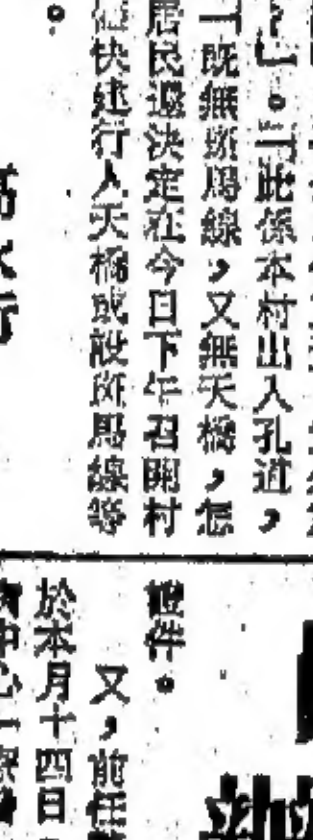 。「此係本村出入孔道，
「既無斑馬線，又無天橋，怎
居民遂決定在今日下午召開村
快建行人天橋或設斑馬線等
。
證件。
又，前任
於本月十四日
中心一